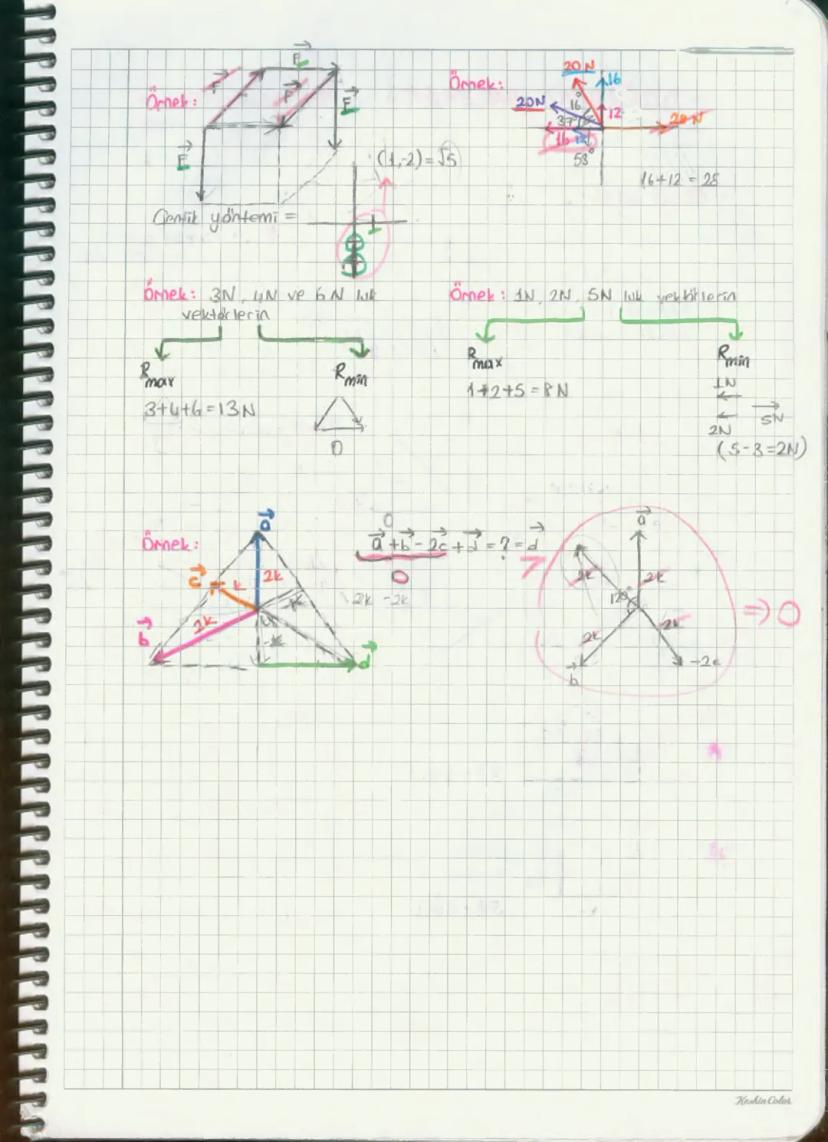 Örnek:
F
F
F
F
F
(1,-2) = √5
Çentik yöntemi =
1
Örnek:
20N
16
20N
16°
12
37°
28N
16 12
53°
16+12 = 28
Örnek: 3N, 4N ve 6N luk
vektörlerin
Rmax
Rmin
3+4+6=13N
0
Örnek: 1N, 2N, 5N luk vektörlerin
Rmax
Rmin
1+2+5=8N
1N
5N
2N
(5-3=2N)
Örnek:
a
c
k
2k
b
2k
-k
-k
d
0
a+b-2c+d=?=d
0
2k -2k
a
2k
2k
120
2k
2k
b
-2c
=> 0
Keskin Color